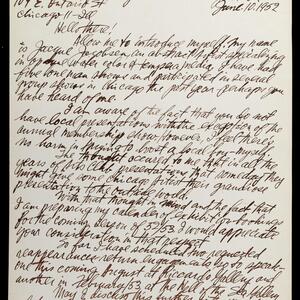 109 E. Ontario St
Chicago 11 - Ill
June 10, 1952
Hello there!
Allow me to introduce myself. My name
is abstract artist specializing
in water color & tempera media. I have had
five one man shows and participated in several
group shows in Chicago the past year perhaps you
have heard of me.
I am aware of the fact that you do not
have local presentations with the exception of the
annual membership show however, I feel there's
no harm in trying to boost a local
The thought occured to me that in all the
years of presentations that someday they
might give some Chicago artist their grandiose
presentation to the outside world.
With that thought in mind and the fact that
I am preparing my calendar of exhibit for
for the coming season of 52/53 I would appreciate
your consideration in that respect.
So far I have scheduled two requested
reappearance return so to speak-
one this coming August at Riccardo Gallery and
another in February 53 at the Well of the Sea Gallery
May I discuss this further